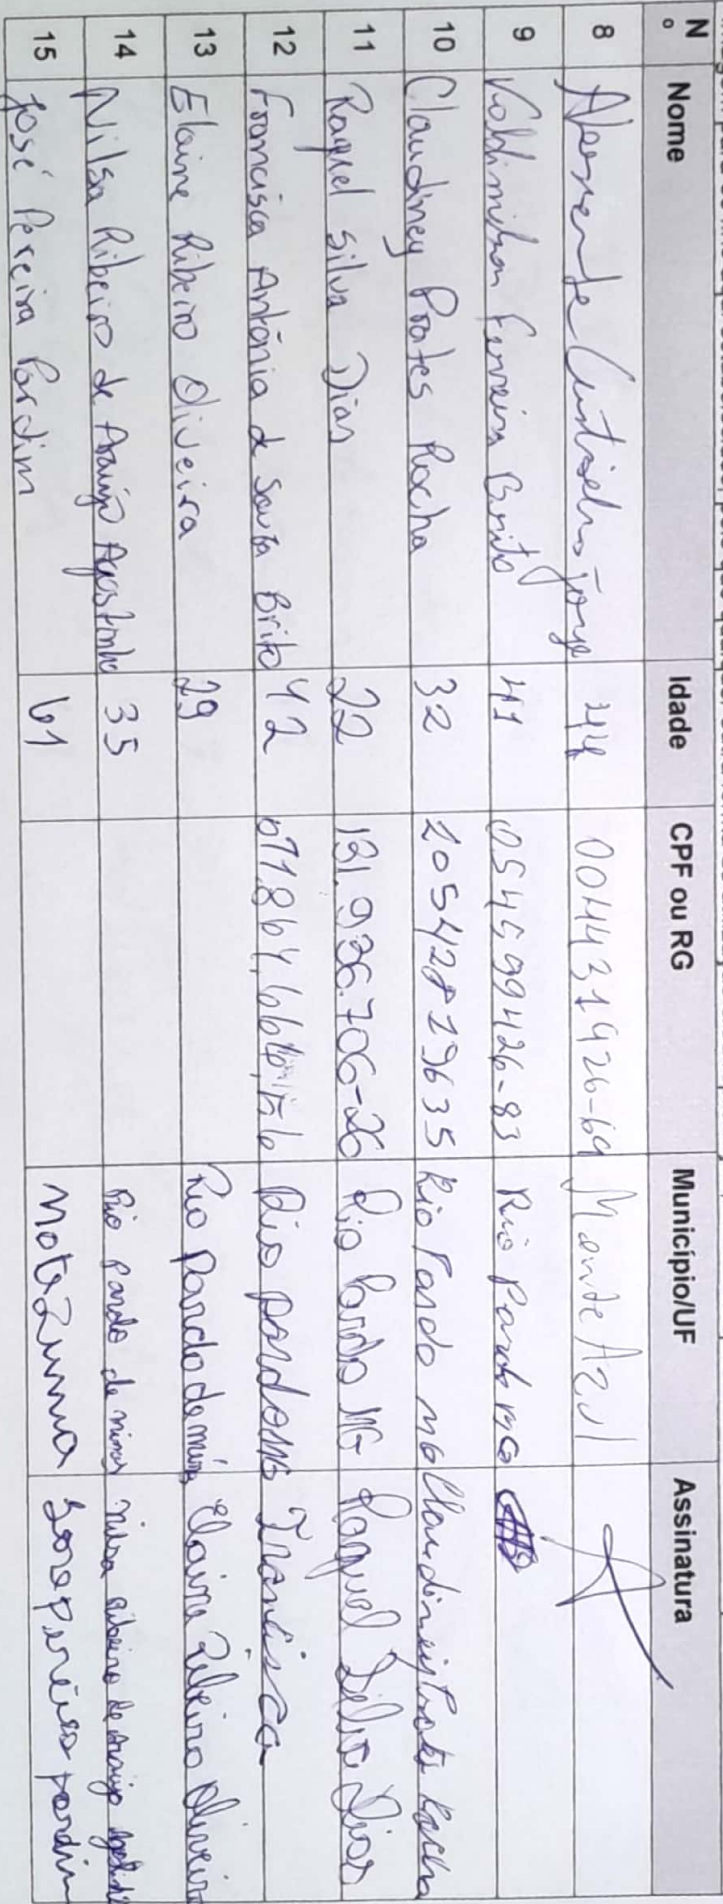 Nº Nome Idade CPF ou RG Município/UF Assinatura
8 Jorge 44 0044431426-69 Monte Azul
9 Valdimilson Ferreira Brito 41 05459942​6-83 Rio Pardo MG
10 Claudiney Prates Rocha 32 Rio Pardo MG Claudiney Prates Rocha
11 Raquel Silva Dias 22 121.936.706-26 Rio Pardo MG Raquel Silva Dias
12 Francisca Antônia de Souza Brito 42 Rio pardo MG Francisca
13 Elaine Ribeiro Oliveira 29 Rio Pardo de minas Elaine Ribeiro Oliveira
14 Nilsa Ribeiro de Araújo Agostinho 35 Rio pardo de minas nilsa ribeiro de araujo
15 José Pereira Pardim 61 Mote Zuma Jose pereira pardim